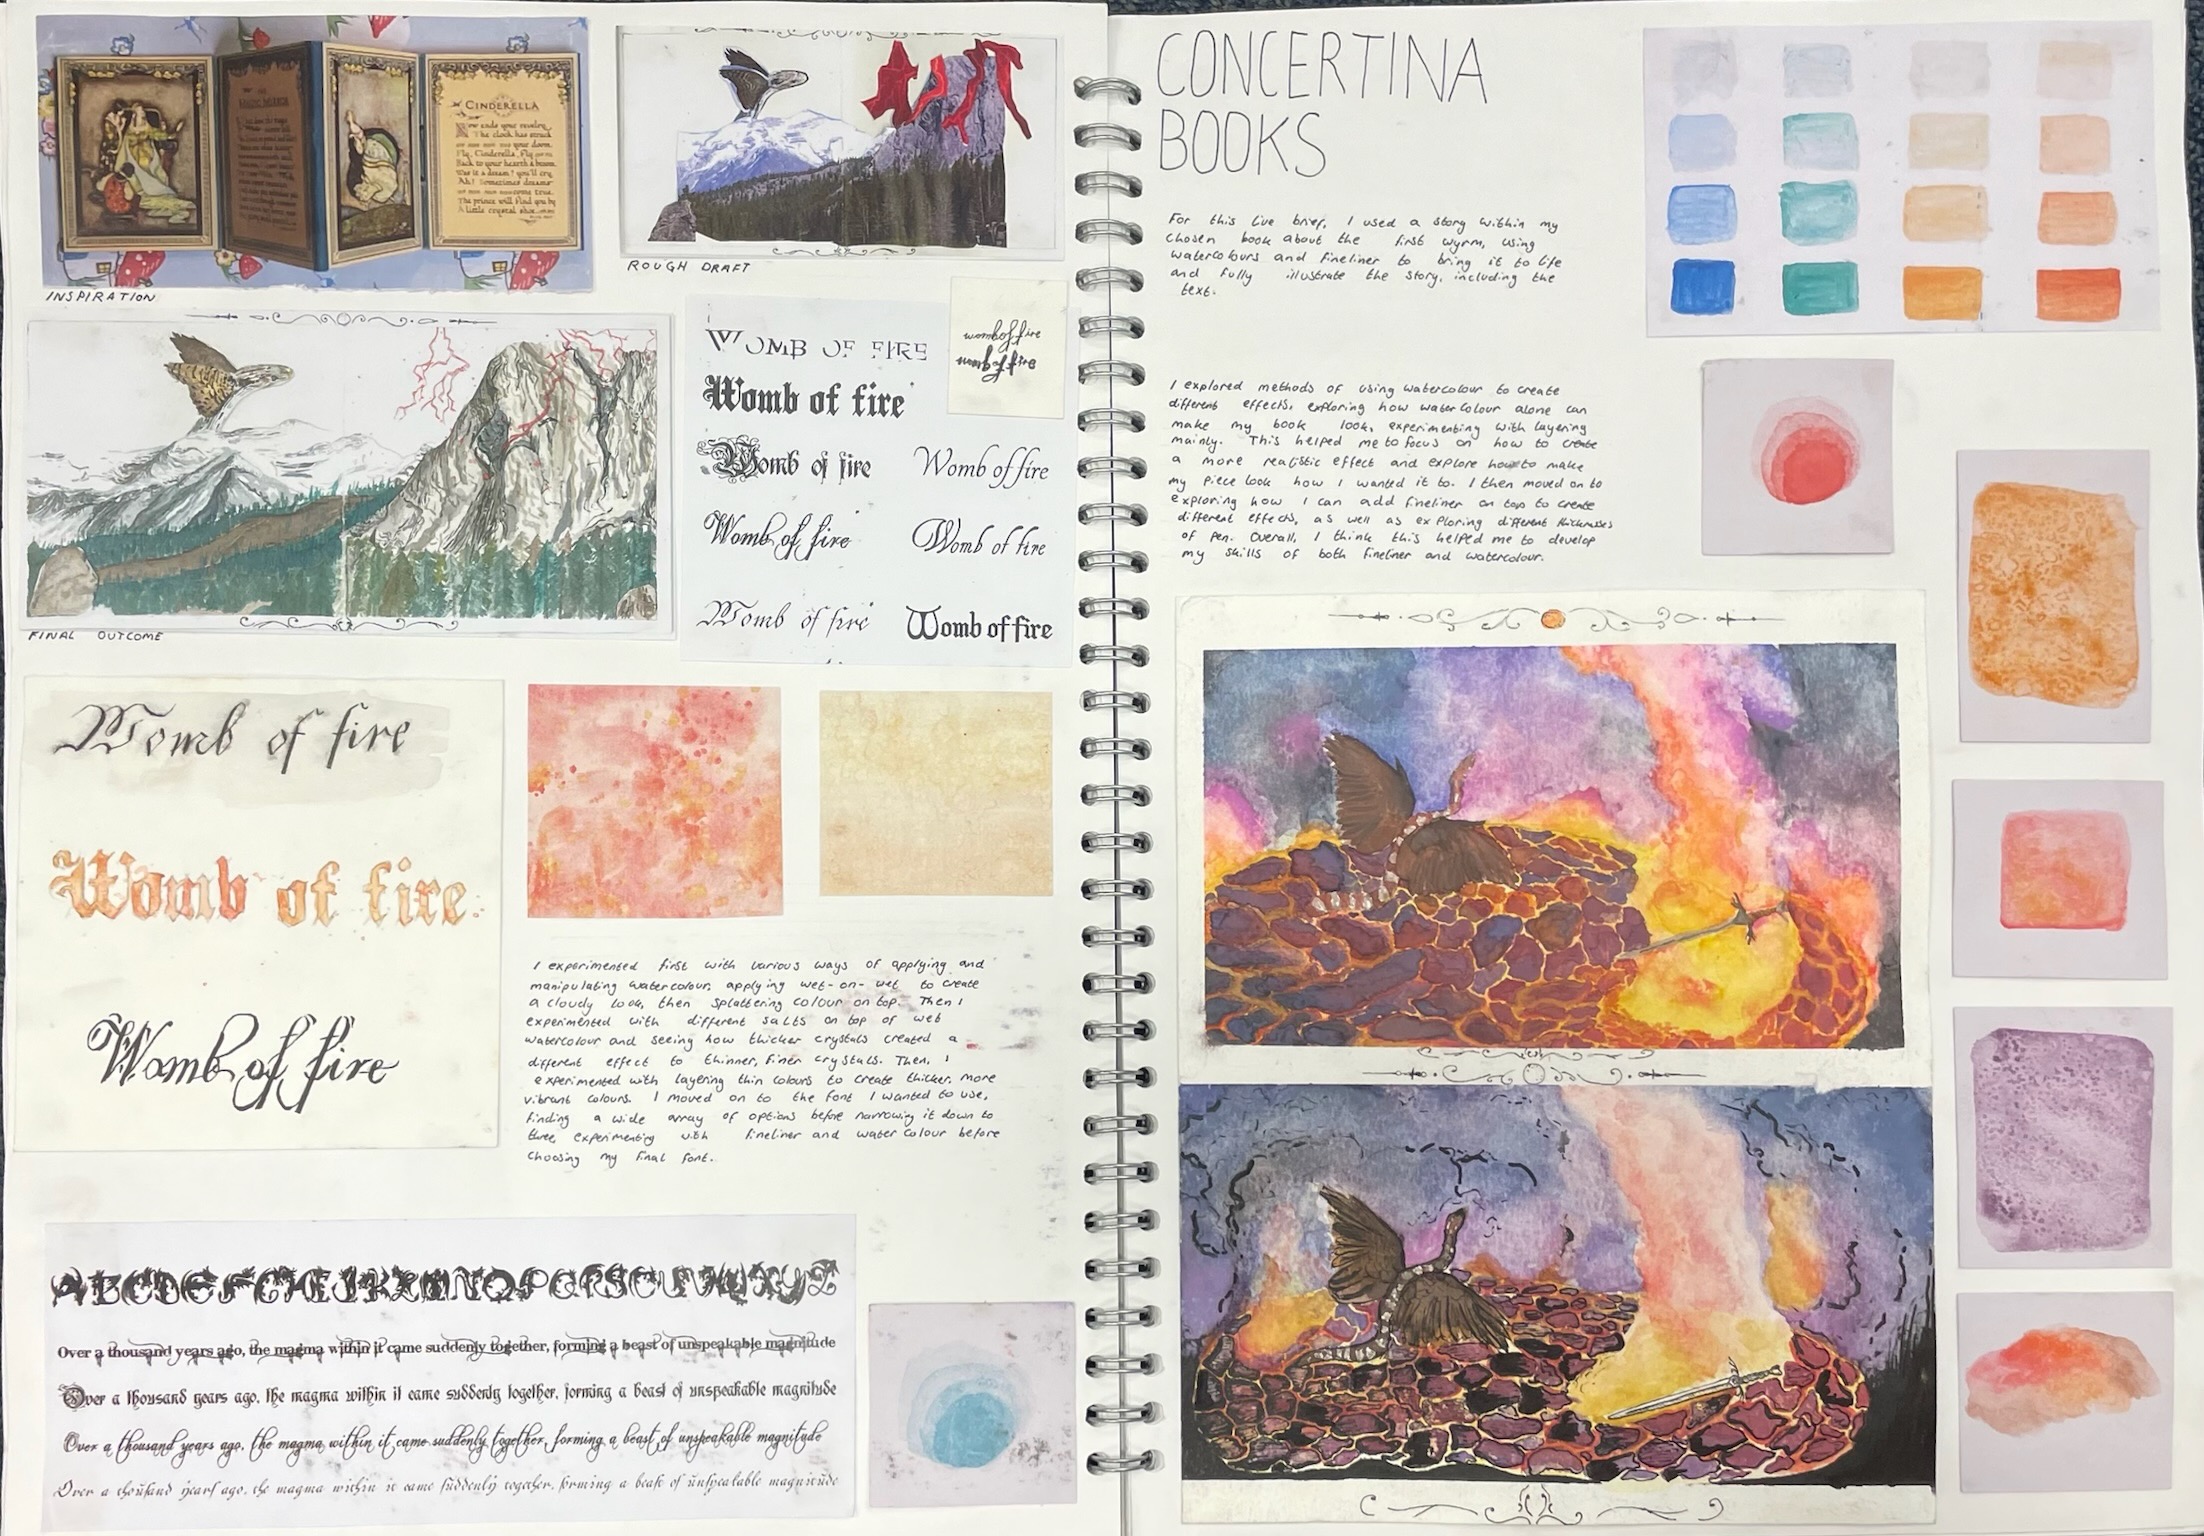 CINDERELLA
Now ends your revelry
The clock has struck
your doom.
Fly, Cinderella, Fly
Back to your hearth & broom.
Was it a dream? you'll cry.
Ah! Sometimes dreams
come true.
The prince will find you by
A little crystal shoe.
INSPIRATION
ROUGH DRAFT
FINAL OUTCOME
WOMB OF FIRE
womb of fire
womb of fire
Womb of fire
Womb of fire
Womb of fire
Womb of fire
Womb of fire
Womb of fire
Womb of fire
Womb of fire
Womb of fire
Womb of fire
I experimented first with various ways of applying and
manipulating watercolour, applying wet-on-wet to create
a cloudy look, then splattering colour on top. Then I
experimented with different salts on top of wet
watercolour and seeing how thicker crystals created a
different effect to thinner, finer crystals. Then, I
experimented with layering thin colours to create thicker, more
vibrant colours. I moved on to the font I wanted to use,
finding a wide array of options before narrowing it down to
three experimenting with fineliner and watercolour before
choosing my final font.
ABCDEFGHIJKLMNOPQRSTUVWXYZ
Over a thousand years ago, the magma within it came suddenly together, forming a beast of unspeakable magnitude
Over a thousand years ago, the magma within it came suddenly together, forming a beast of unspeakable magnitude
Over a thousand years ago, the magma within it came suddenly together, forming a beast of unspeakable magnitude
Over a thousand years ago, the magma within it came suddenly together, forming a beast of unspeakable magnitude
CONCERTINA
BOOKS
For this live brief, I used a story within my
chosen book about the first wyrm, using
watercolours and fineliner to bring it to life
and fully illustrate the story, including the
text.
I explored methods of using watercolour to create
different effects, exploring how watercolour alone can
make my book look, experimenting with layering
mainly. This helped me to focus on how to create
a more realistic effect and explore how to make
my piece look how I wanted it to. I then moved on to
exploring how I can add fineliner on top to create
different effects, as well as exploring different thicknesses
of pen. Overall, I think this helped me to develop
my skills of both fineliner and watercolour.